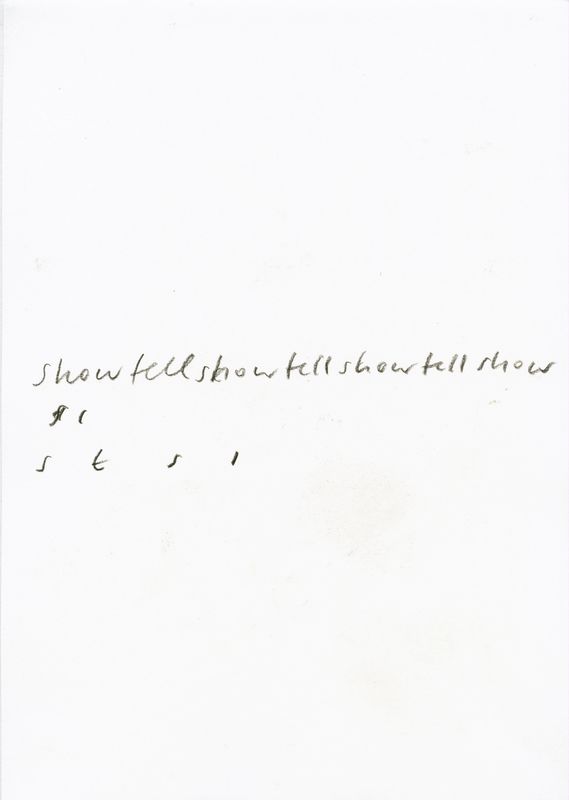 showtellshowtellshowtellshow
s t s